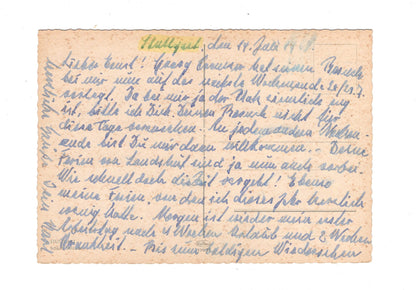 Stuttgart, den 14. Juli
Liebe ! Georg hat seinen Besuch
bei mir nun auf das nächste Wochenende 20/21.7.
verlegt. Da bei mir ja der Platz ziemlich eng
ist, bitte ich Dich, Deinen Besuch nicht für
diese Tage vorzusehen. An jedem andern Wochen-
ende bist Du mir dann willkommen. - Deine
Ferien in Landshut sind ja nun auch vorbei.
Wie schnell doch die Zeit vergeht! Ebenso
meine Ferien, von den ich dieses Jahr herzlich
wenig hatte. Morgen ist wieder mein erster
nach 4 Wochen Urlaub und 2 Wochen
Krankheit. - Bis zum baldigen Wiedersehen
Herzliche Grüße Dein